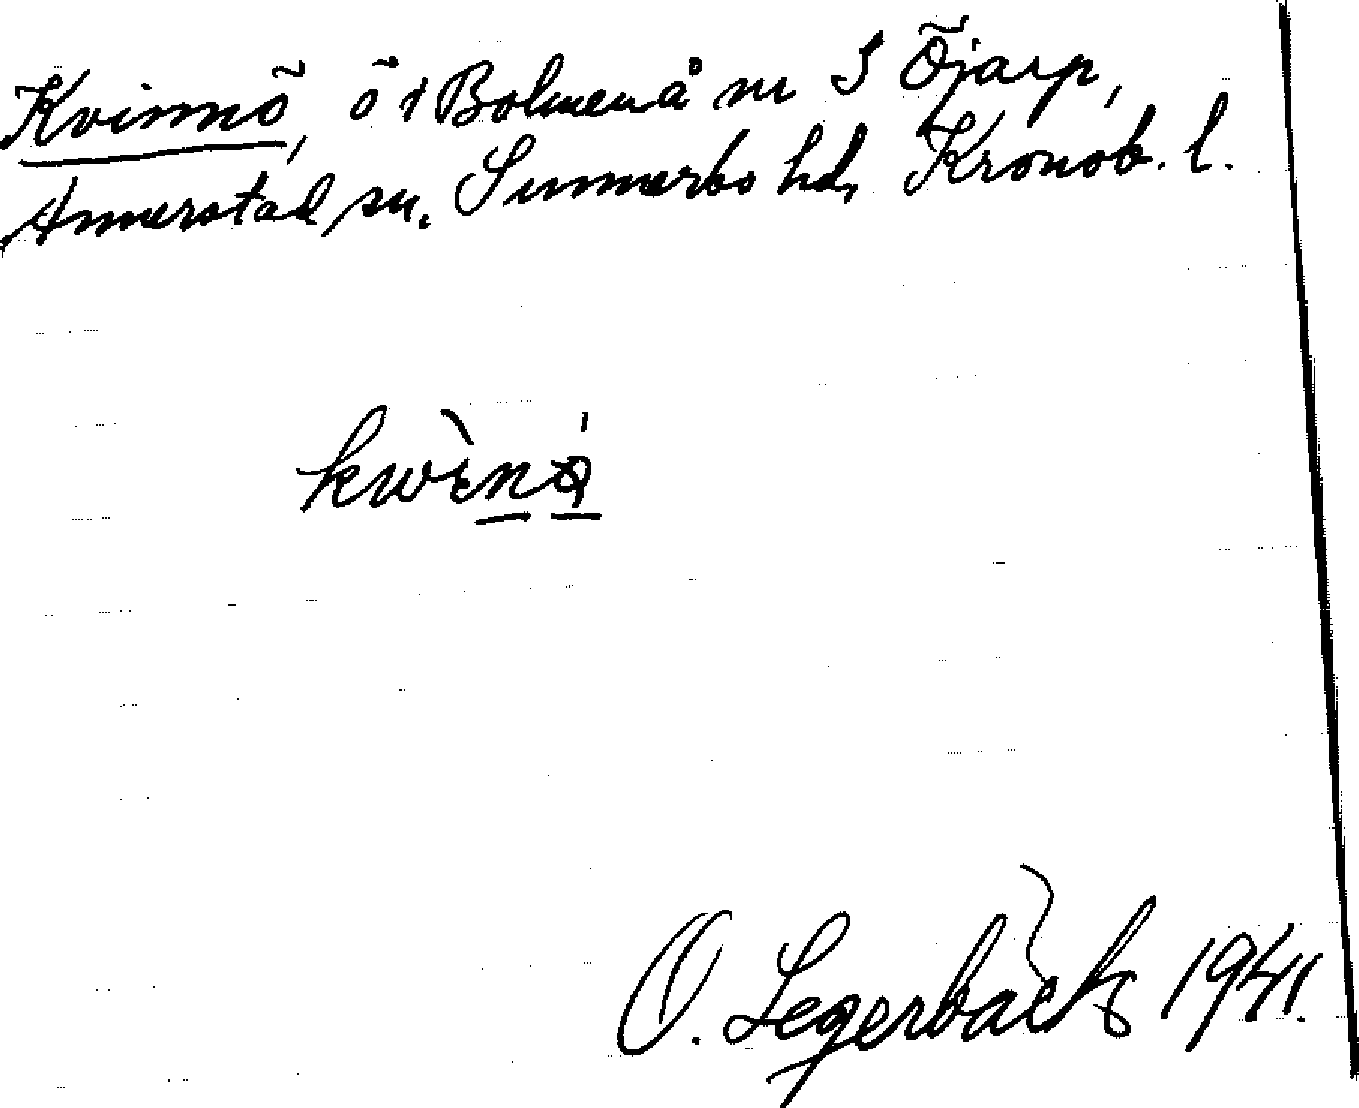 Kvinnö, ö i Bolmenå nv S Öjarp,
Annerstad sn. Sunnerbo hd, Kronob. l.
O. Legerbäck 1941.